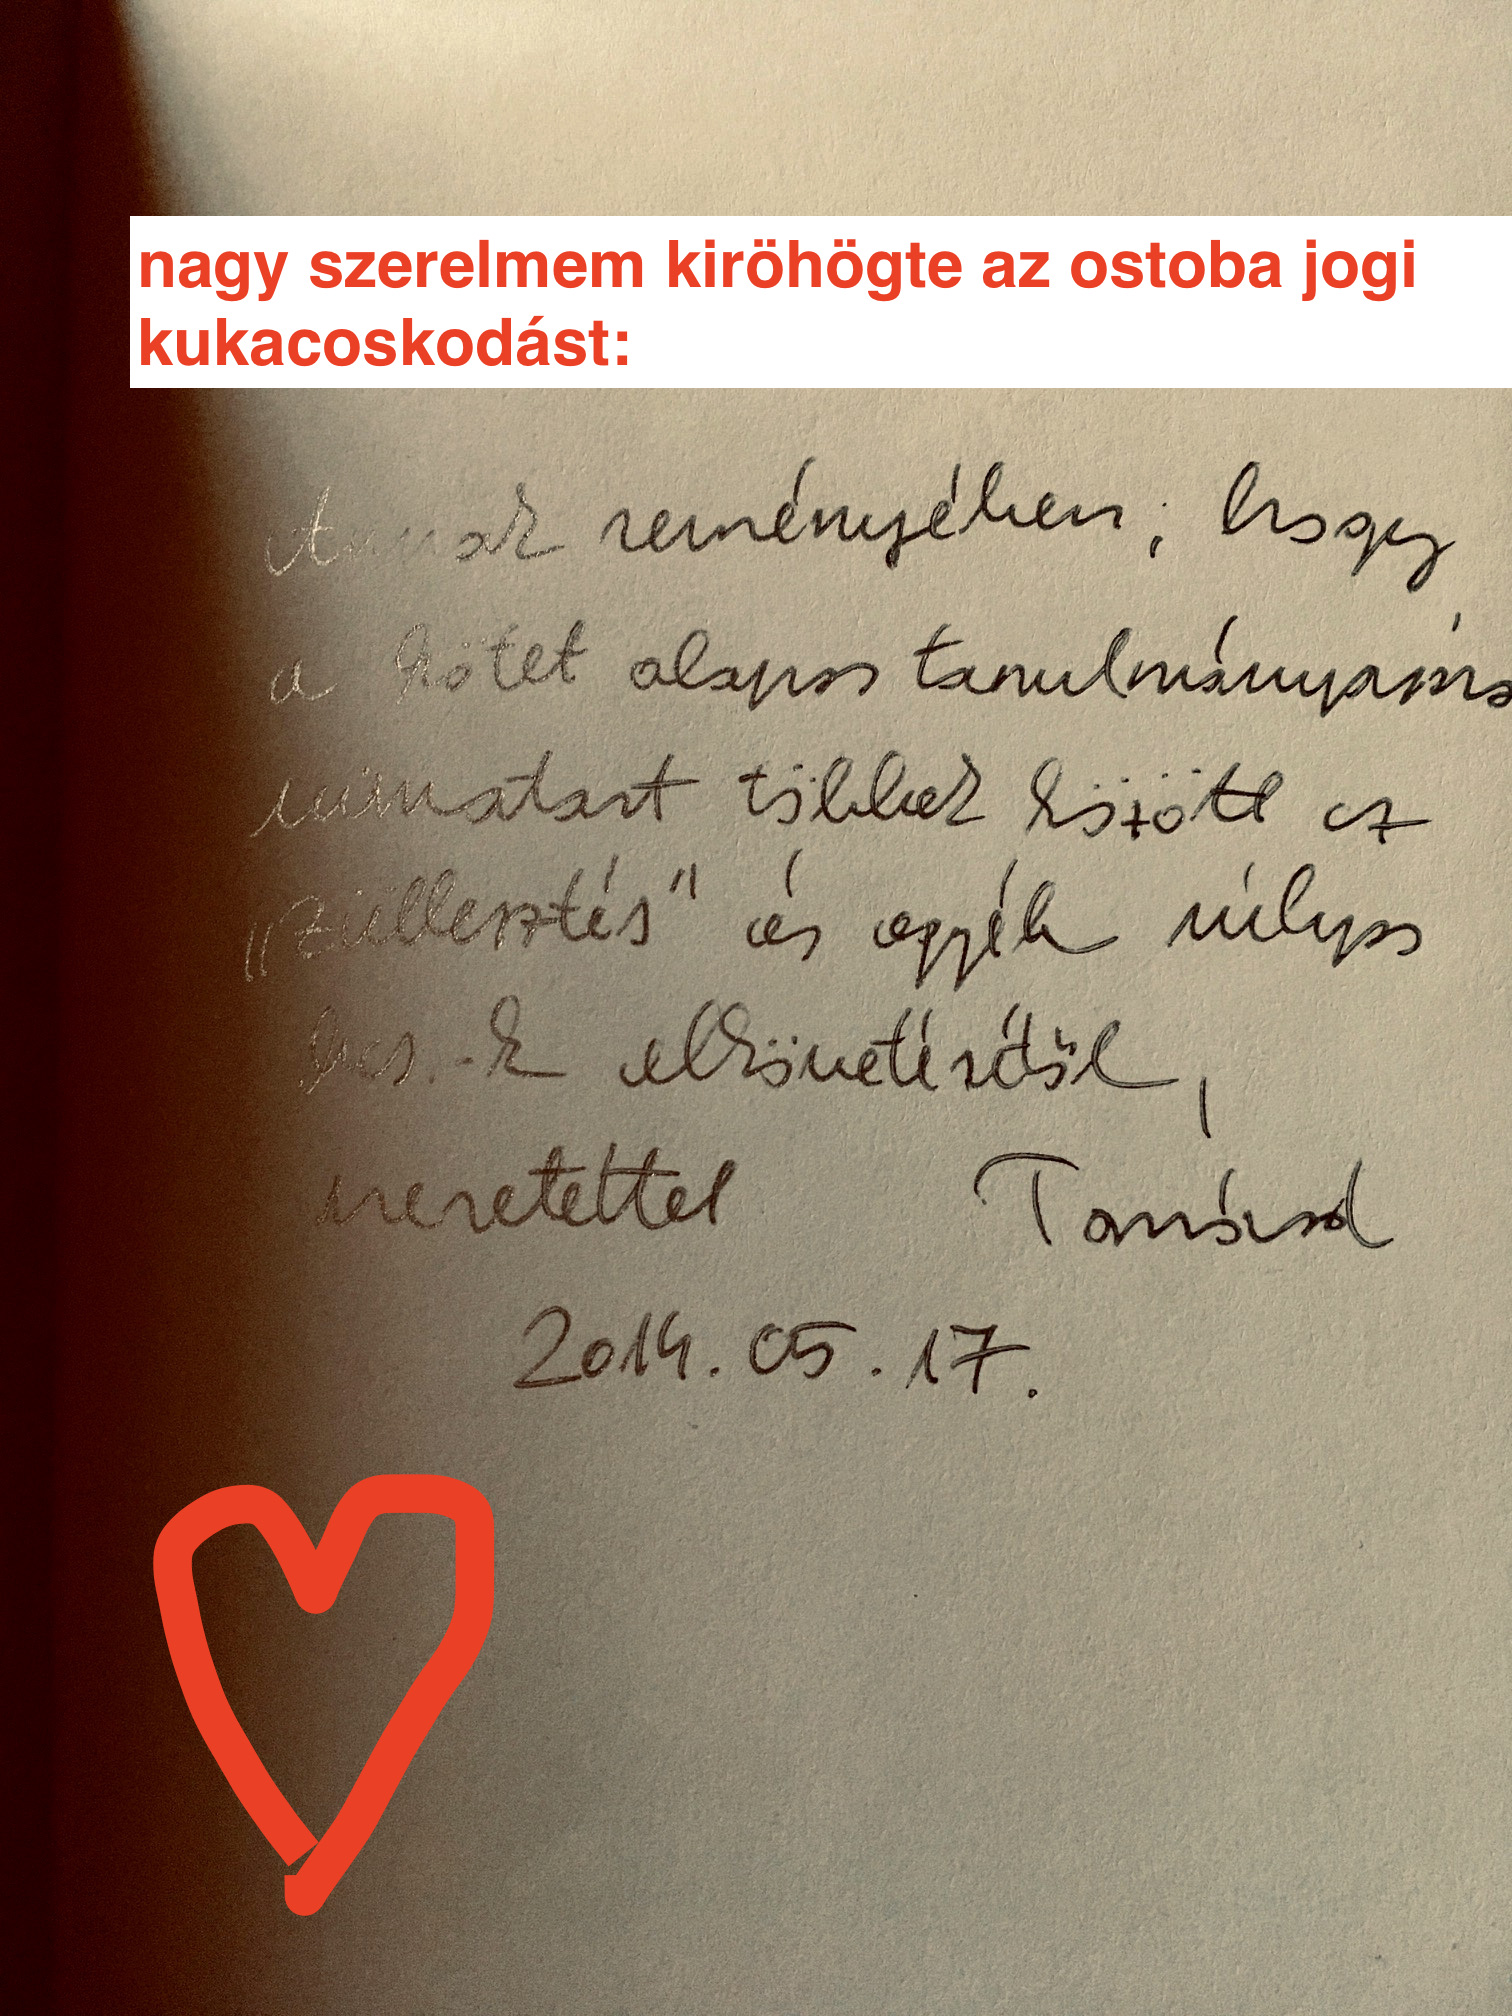 nagy szerelmem kiröhögte az ostoba jogi
kukacoskodást:
Annak reményében, hogy
a kötet alapos tanulmányozása
visszatart többek között az
„züllesztés" és egyéb súlyos
bcs.-k elkövetésétől,
szeretettel Tamásod
2014.05.17.